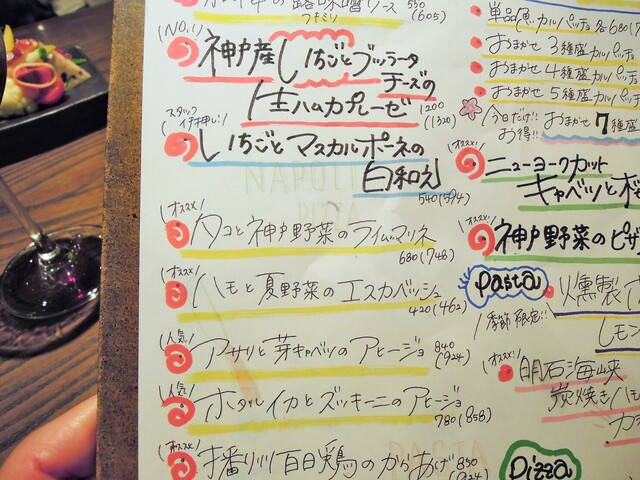 550
(605)
(NO.1)
神戸産いちごとブッラータ
チーズの
生ハムカプレーゼ 1200
(1320)
スタッフ
イチ押し!
いちごとマスカルポーネの
白和え
540(594)
オススメ!
タコと神戸野菜のライムマリネ
680(748)
オススメ!
ハモと夏野菜のエスカベッシュ
420(462)
人気!
アサリと芽キャベツのアヒージョ 840
(924)
人気!
ホタルイカとズッキーニのアヒージョ
780(858)
オススメ!
播州百日鶏のからあげ
単品魚カルパッチョ各680
おまかせ3種盛カルパッチョ
おまかせ4種盛カルパッチョ
おまかせ5種盛カルパッチョ
今日だけ!!
お得!!
おまかせ7種盛
オススメ!
ニューヨークカット
キャベツと
オススメ!
神戸野菜のピザ
pasta
季節限定!!
燻製
レモン
オススメ!
明石海峡
炭焼き
Pizza
NAPOLI
PIZZA
PASTA